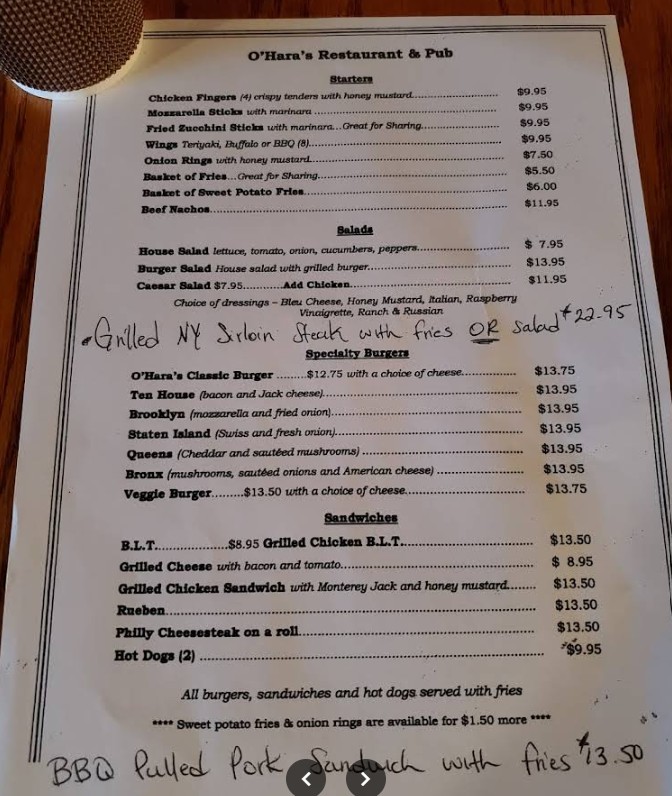 O'Hara's Restaurant & Pub
Starters
Chicken Fingers (4) crispy tenders with honey mustard.............................. $9.95
Mozzarella Sticks with marinara ................................................................ $9.95
Fried Zucchini Sticks with marinara...Great for Sharing........................... $9.95
Wings Teriyaki, Buffalo or BBQ (8)............................................................. $9.95
Onion Rings with honey mustard................................................................ $7.50
Basket of Fries...Great for Sharing............................................................. $5.50
Basket of Sweet Potato Fries...................................................................... $6.00
Beef Nachos................................................................................................ $11.95
Salads
House Salad lettuce, tomato, onion, cucumbers, peppers............................. $ 7.95
Burger Salad House salad with grilled burger............................................. $13.95
Caesar Salad $7.95............Add Chicken.................................................... $11.95
Choice of dressings – Bleu Cheese, Honey Mustard, Italian, Raspberry
Vinaigrette, Ranch & Russian
Grilled NY Sirloin Steak with fries OR salad $22.95
Specialty Burgers
O'Hara's Classic Burger .........$12.75 with a choice of cheese................ $13.75
Ten House (bacon and Jack cheese)............................................................ $13.95
Brooklyn (mozzarella and fried onion)......................................................... $13.95
Staten Island (Swiss and fresh onion)......................................................... $13.95
Queens (Cheddar and sautéed mushrooms) ................................................ $13.95
Bronx (mushrooms, sautéed onions and American cheese) ......................... $13.95
Veggie Burger.........$13.50 with a choice of cheese................................... $13.75
Sandwiches
B.L.T....................$8.95 Grilled Chicken B.L.T...................................... $13.50
Grilled Cheese with bacon and tomato........................................................ $ 8.95
Grilled Chicken Sandwich with Monterey Jack and honey mustard........ $13.50
Rueben......................................................................................................... $13.50
Philly Cheesesteak on a roll........................................................................ $13.50
Hot Dogs (2) ................................................................................................ $9.95
All burgers, sandwiches and hot dogs served with fries
**** Sweet potato fries & onion rings are available for $1.50 more ****
BBQ Pulled Pork Sandwich with fries $13.50